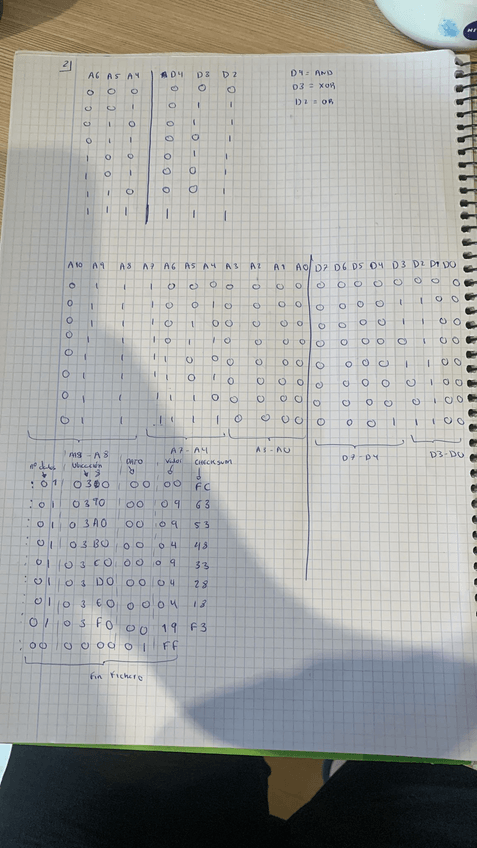 2)
A6 A5 A4 D4 D3 D2
0 0 0 0 0 0
0 0 1 0 1 1
0 1 0 0 1 1
0 1 1 0 0 1
1 0 0 0 1 1
1 0 1 0 0 1
1 1 0 0 0 1
1 1 1 1 1 1
D4 = AND
D3 = XOR
D2 = OR
A10 A9 A8 A7 A6 A5 A4 A3 A2 A1 A0 D7 D6 D5 D4 D3 D2 D1 D0
0 1 1 1 0 0 0 0 0 0 0 0 0 0 0 0 0 0 0
0 1 1 1 0 0 1 0 0 0 0 0 0 0 0 1 1 0 0
0 1 1 1 0 1 0 0 0 0 0 0 0 0 0 1 1 0 0
0 1 1 1 0 1 1 0 0 0 0 0 0 0 0 0 1 0 0
0 1 1 1 1 0 0 0 0 0 0 0 0 0 0 1 1 0 0
0 1 1 1 1 0 1 0 0 0 0 0 0 0 0 0 1 0 0
0 1 1 1 1 1 0 0 0 0 0 0 0 0 0 0 1 0 0
0 1 1 1 1 1 1 0 0 0 0 0 0 0 1 1 1 0 0
A7-A4 A3-A0 D7-D4 D3-D0
nº datos Ubicación DATO Valor CHECKSUM
: 01 0380 00 00 FC
: 01 0390 00 09 63
: 01 03A0 00 09 53
: 01 03B0 00 04 48
: 01 03C0 00 09 33
: 01 03D0 00 04 28
: 01 03E0 00 04 18
: 01 03F0 00 19 F3
: 00 0000 01 FF
Fin Fichero